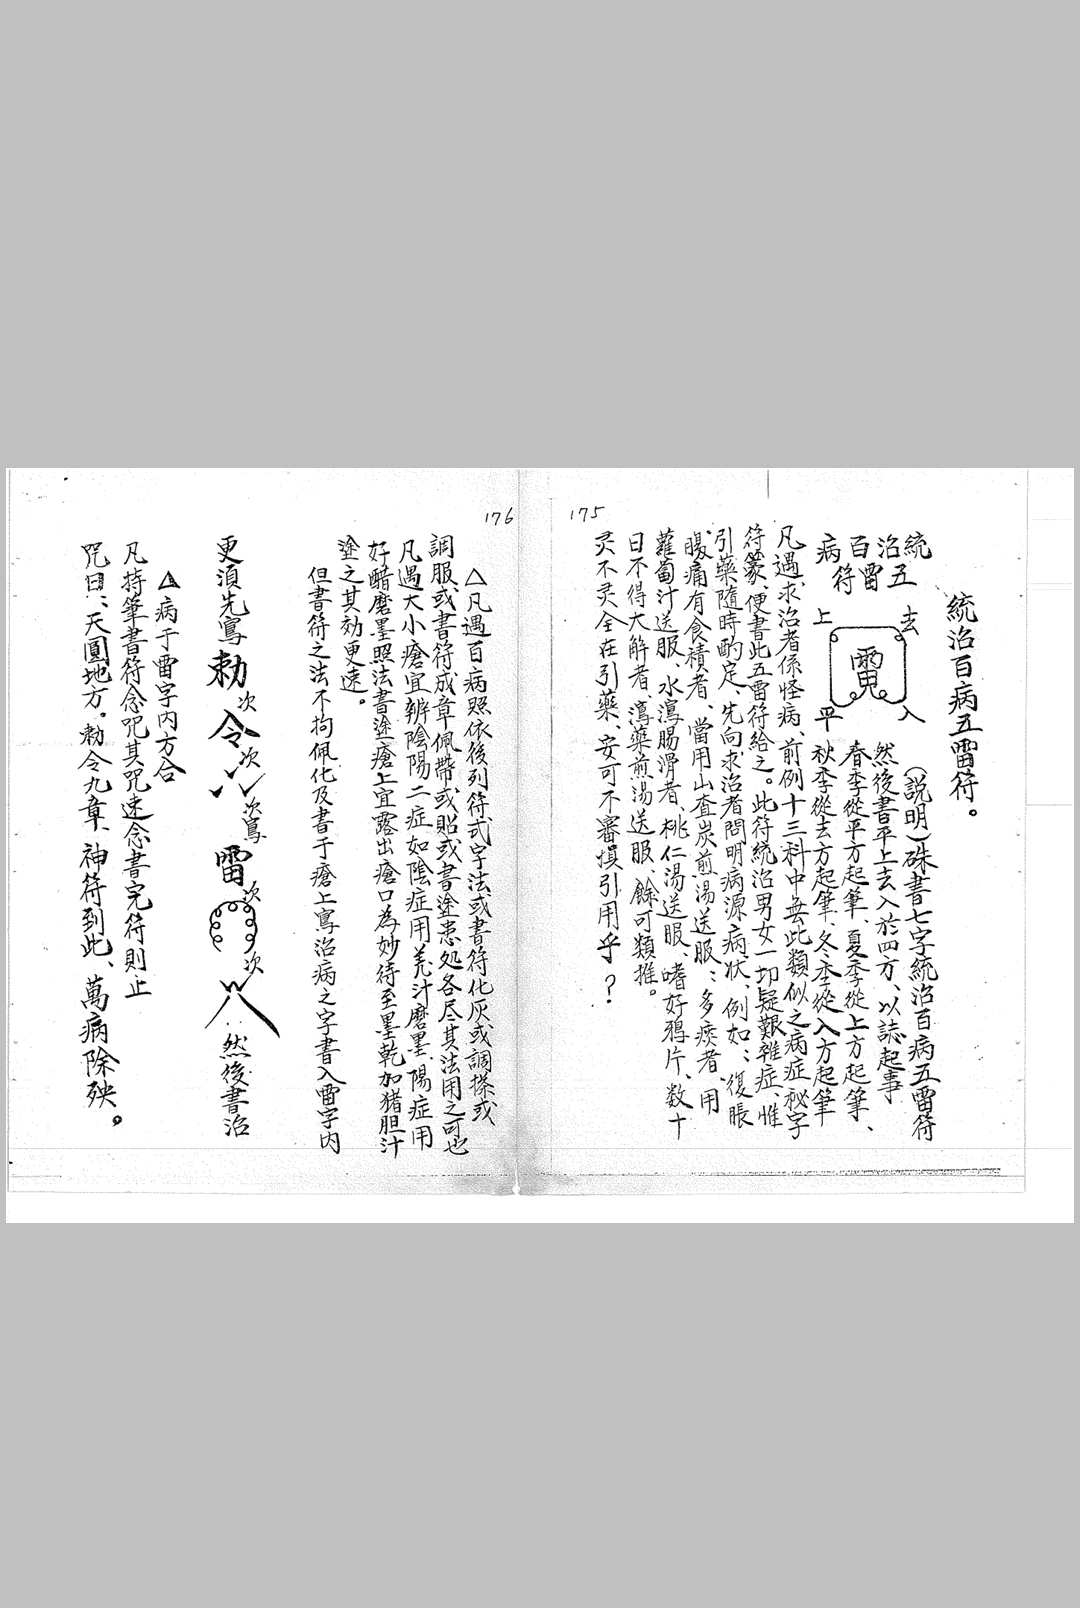 175
統治百病五雷符。
統治百病
五雷符
去
上
入
平
(説明)硃書七字統治百病五雷符
然後書平上去入於四方、以誌起事
春季從平方起筆、夏季從上方起筆、
秋季從去方起筆、冬季從入方起筆
凡遇求治者係怪病、前例十三科中無此類似之病症秘字
符篆、便書此五雷符給之。此符統治男女一切疑艱雜症、惟
引藥隨時酌定、先向求治者問明病源病狀、例如:復脹
腹痛有食積者、當用山查炭煎湯送服:多痰者、用
蘿蔔汁送服、水瀉腸滑者、桃仁湯送服、嗜好鴉片、数十
日不得大解者、瀉藥煎湯送服、餘可類推。
灵不灵全在引藥、安可不審慎引用乎?
176
△凡遇百病照依後列符式字法或書符化灰或調搽或
調服、或書符成章佩帶或貼或書塗患処各尽其法用之可也
凡遇大小瘡宜辨陰陽二症如陰症用羌汁磨墨、陽症用
好醋磨墨照法書塗瘡上宜露出瘡口為妙待至墨乾加猪胆汁
塗之其効更速。
但書符之法不拘佩化及書于瘡上寫治病之字書入雷字內
更須先寫勅次令次八次寫雷次次八然後書治
△病于雷字內方合
凡持筆書符念咒其咒速念書完符則止
咒曰:天圓地方。勅令九章、神符到此、萬病除殃。